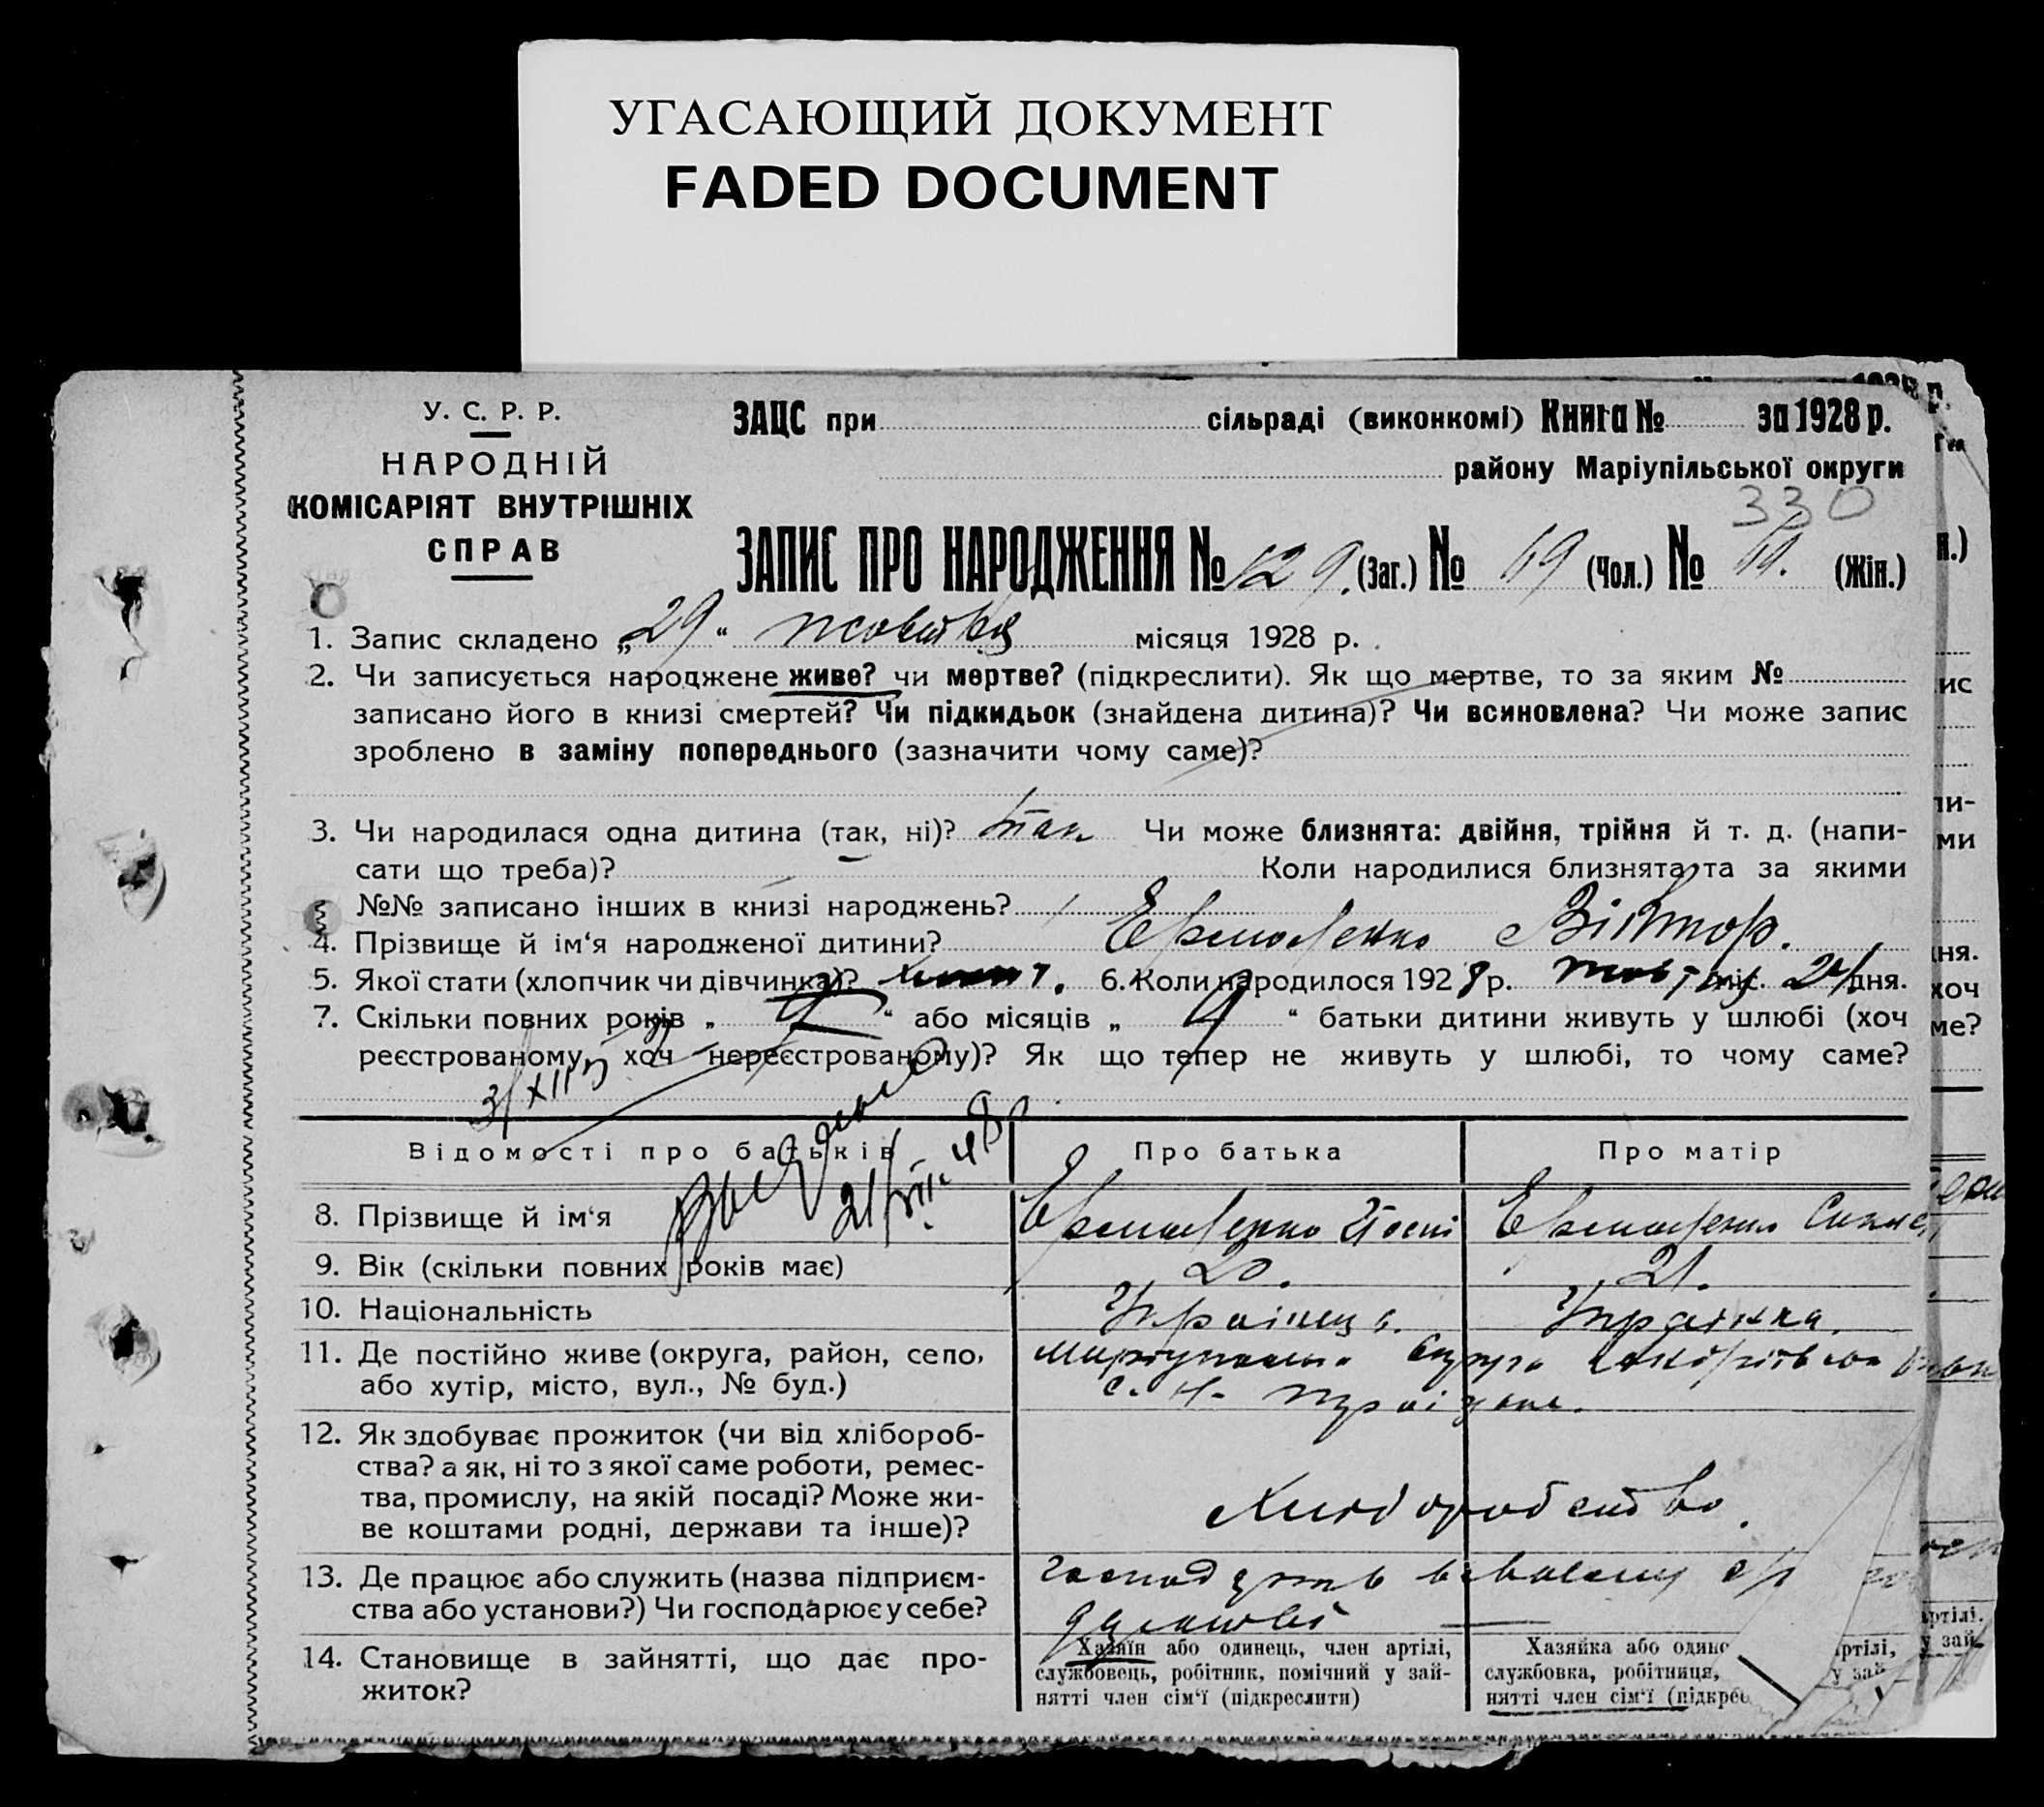 УГАСАЮЩИЙ ДОКУМЕНТ
FADED DOCUMENT
У. С. Р. Р.
НАРОДНІЙ
КОМІСАРІЯТ ВНУТРІШНІХ
СПРАВ
ЗАЦС при сільраді (виконкомі) Книга № за 1928 р.
району Маріупільської округи
330
ЗАПИС ПРО НАРОДЖЕННЯ № 129. (Заг.) № 69 (Чол.) № (Жін.)
1. Запис складено „29“ жовтня місяця 1928 р.
2. Чи записується народжене живе? чи мертве? (підкреслити). Як що мертве, то за яким №
записано його в книзі смертей? Чи підкидьок (знайдена дитина)? Чи всиновлена? Чи може запис
зроблено в заміну попереднього (зазначити чому саме)?
3. Чи народилася одна дитина (так, ні)? так Чи може близнята: двійня, трійня й т. д. (напи-
сати що треба)? Коли народилися близнята та за якими
№№ записано інших в книзі народжень?
4. Прізвище й ім‘я народженої дитини? Ермоленко Віктор.
5. Якої стати (хлопчик чи дівчинка)? хлопч. 6. Коли народилося 1928 р. жовтня міс. 24 дня.
7. Скільки повних років „ “ або місяців „ 9 “ батьки дитини живуть у шлюбі (хоч
реєстрованому, хоч нереєстрованому)? Як що тепер не живуть у шлюбі, то чому саме?
Відомості про батьків Про батька Про матір
8. Прізвище й ім‘я Ермоленко Ермоленко
9. Вік (скільки повних років має) 20. 21.
10. Національність Українець. Українка.
11. Де постійно живе (округа, район, село,
або хутір, місто, вул., № буд.)
округа
с. Н-
12. Як здобуває прожиток (чи від хлібороб-
ства? а як, ні то з якої саме роботи, ремес-
тва, промислу, на якій посаді? Може жи-
ве коштами родні, держави та інше)?
Хліборобство.
13. Де працює або служить (назва підприєм-
ства або установи?) Чи господарює у себе?
14. Становище в зайнятті, що дає про-
житок?
Хазаїн або одинець, член артілі,
службовець, робітник, помічний у зай-
нятті член сім‘ї (підкреслити)
Хазяйка або
службовка, робітниця,
нятті член сім‘ї